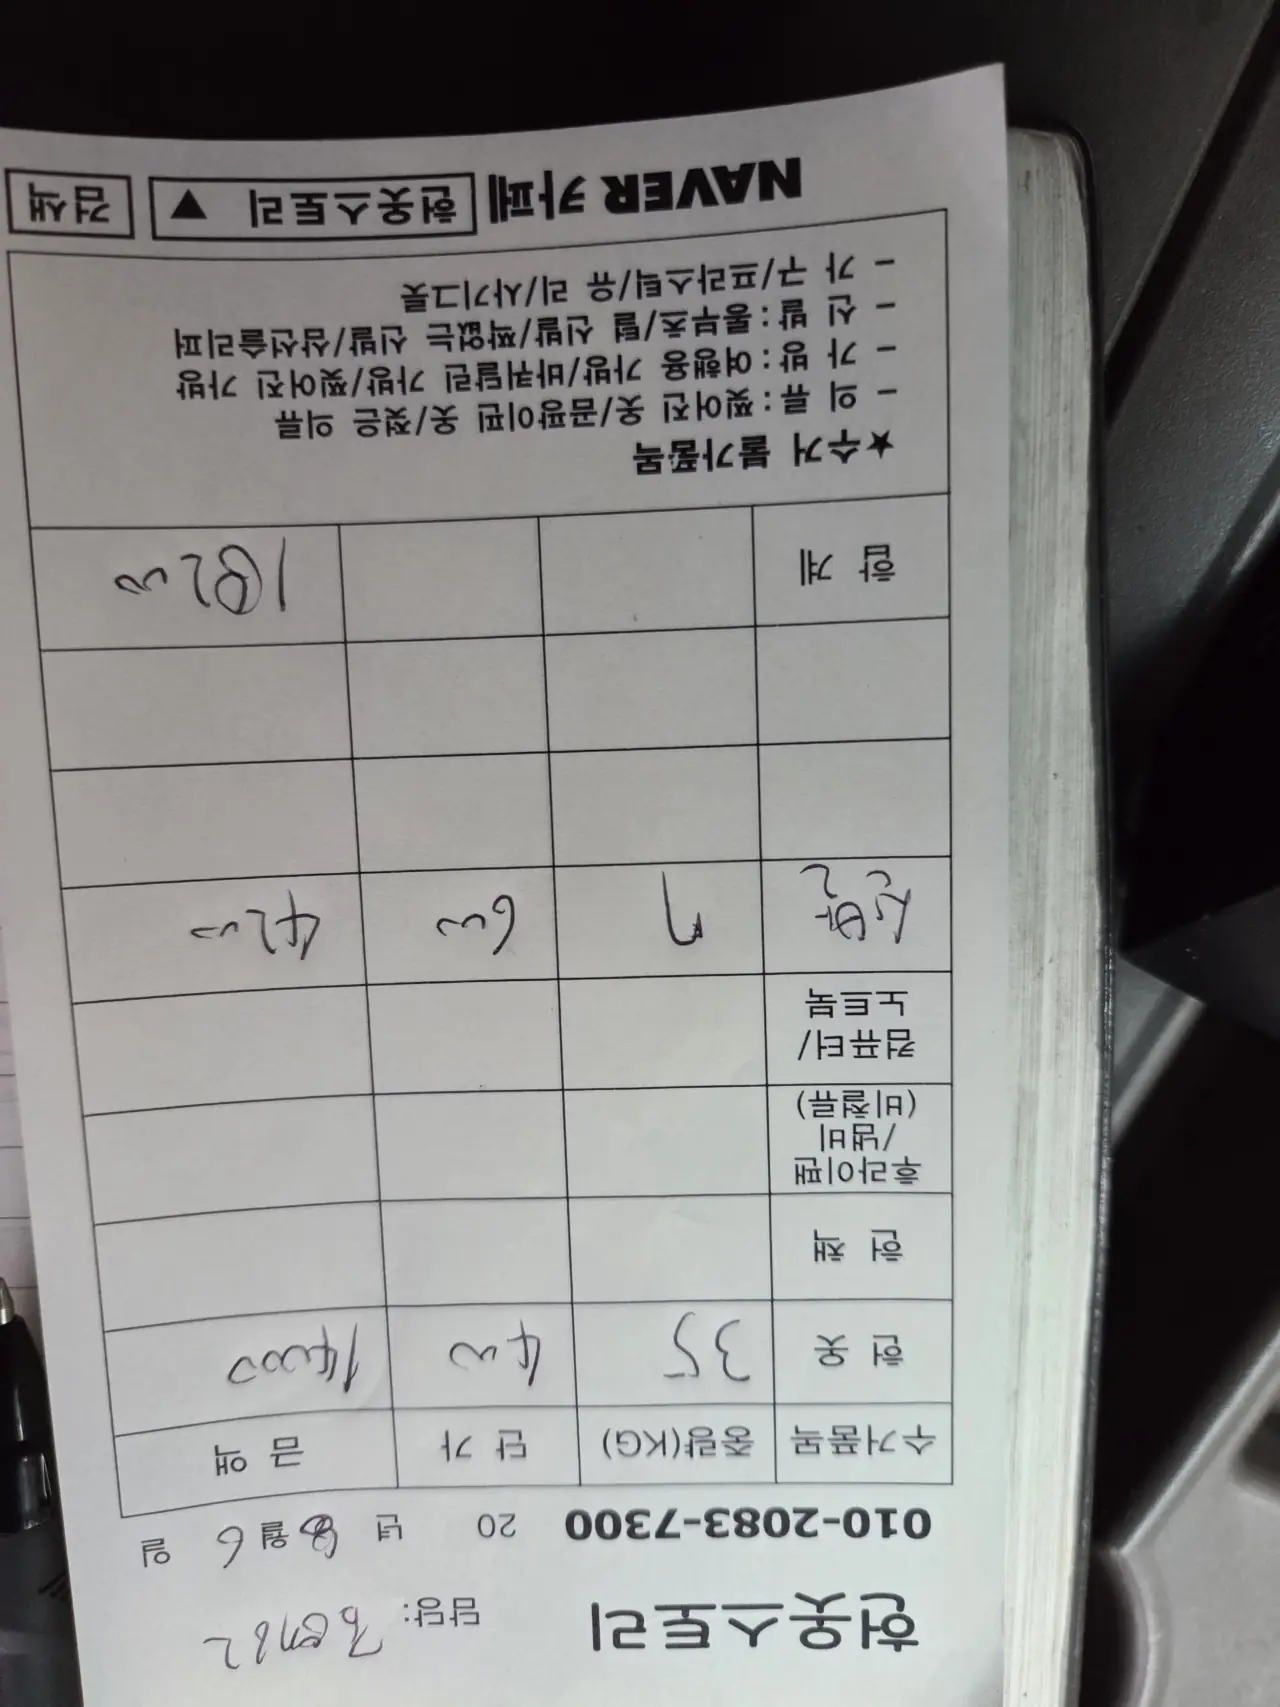 헌옷스토리 담당:
010-2083-7300 20 년 월 6 일
수거품목 중량(KG) 단 가 금 액
헌 옷 35 400 14000
헌 책
후라이팬
/냄비
(비철류)
컴퓨터/
노트북
신발 7 600 4200
합 계 18200
★수거 불가품목
- 의 류:찢어진 옷/곰팡이핀 옷/젖은 의류
- 가 방:여행용 가방/바퀴달린 가방/찢어진 가방
- 신 발:롱부츠/털 신발/짝없는 신발/삼선슬리퍼
- 가 구/프라스틱/유 리/사기그릇
NAVER 카페 헌옷스토리 ▼ 검색